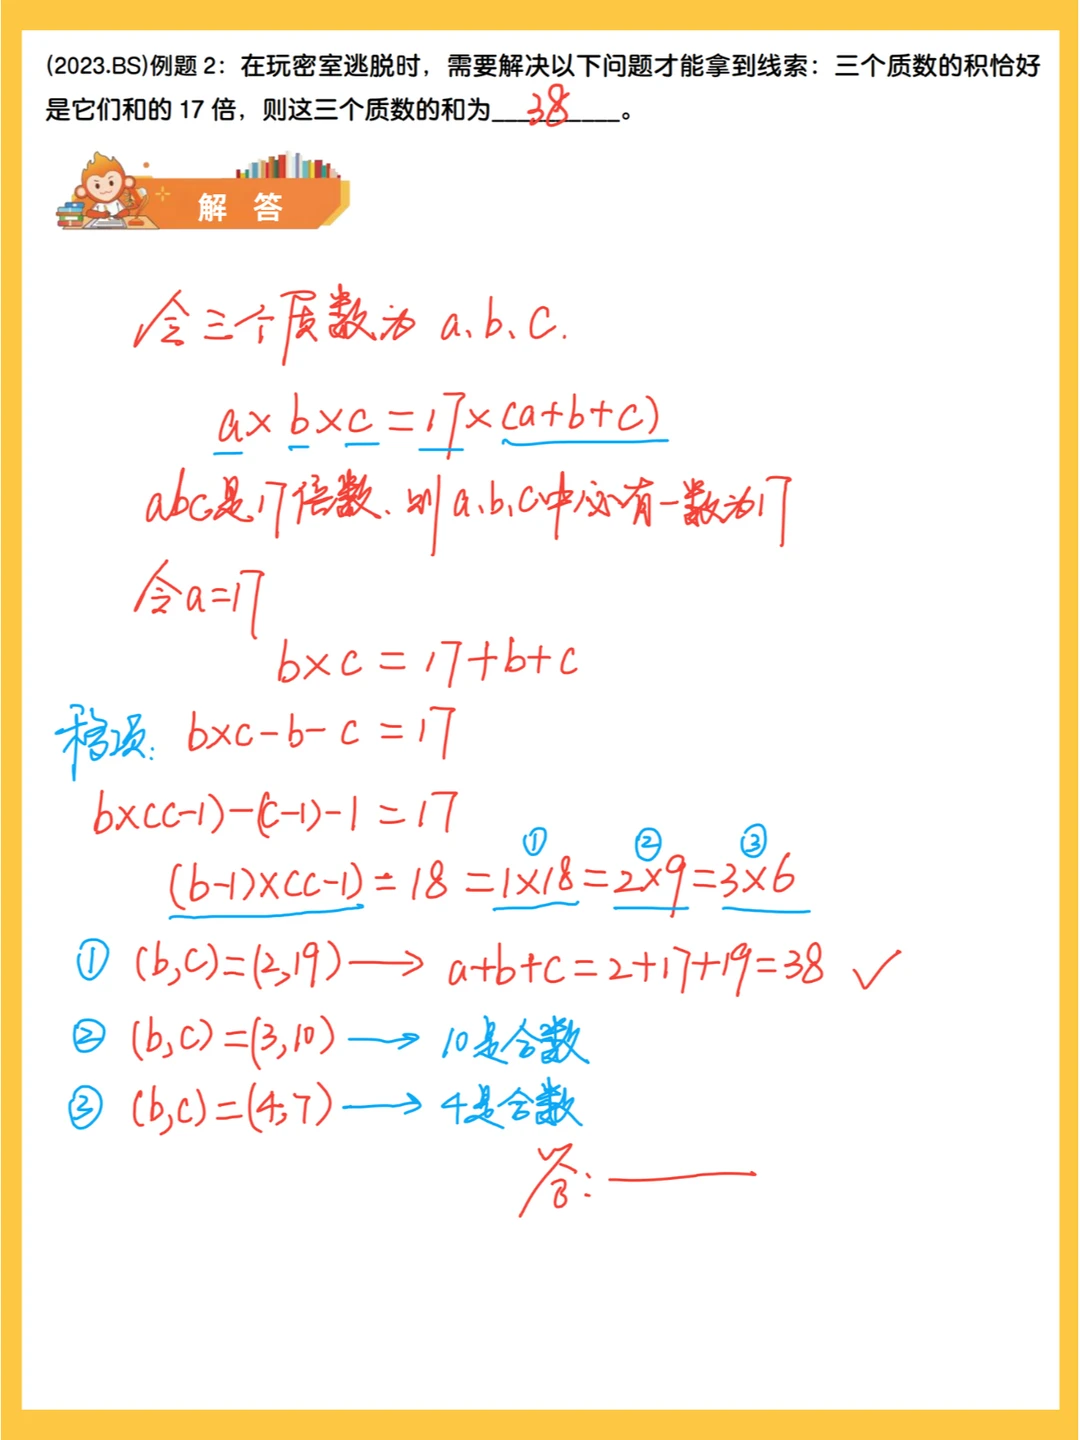 (2023.BS)例题 2：在玩密室逃脱时，需要解决以下问题才能拿到线索：三个质数的积恰好
是它们和的 17 倍，则这三个质数的和为__38__。
解 答
令三个质数为 a、b、c.
a×b×c=17×(a+b+c)
abc是17倍数、则a、b、c中必有一数为17
令a=17
b×c=17+b+c
移项: b×c-b-c=17
b×(c-1)-(c-1)-1=17
① ② ③
(b-1)×(c-1)=18=1×18=2×9=3×6
① (b,c)=(2,19)→a+b+c=2+17+19=38 ✓
② (b,c)=(3,10)→10是合数
③ (b,c)=(4,7)→4是合数
答: